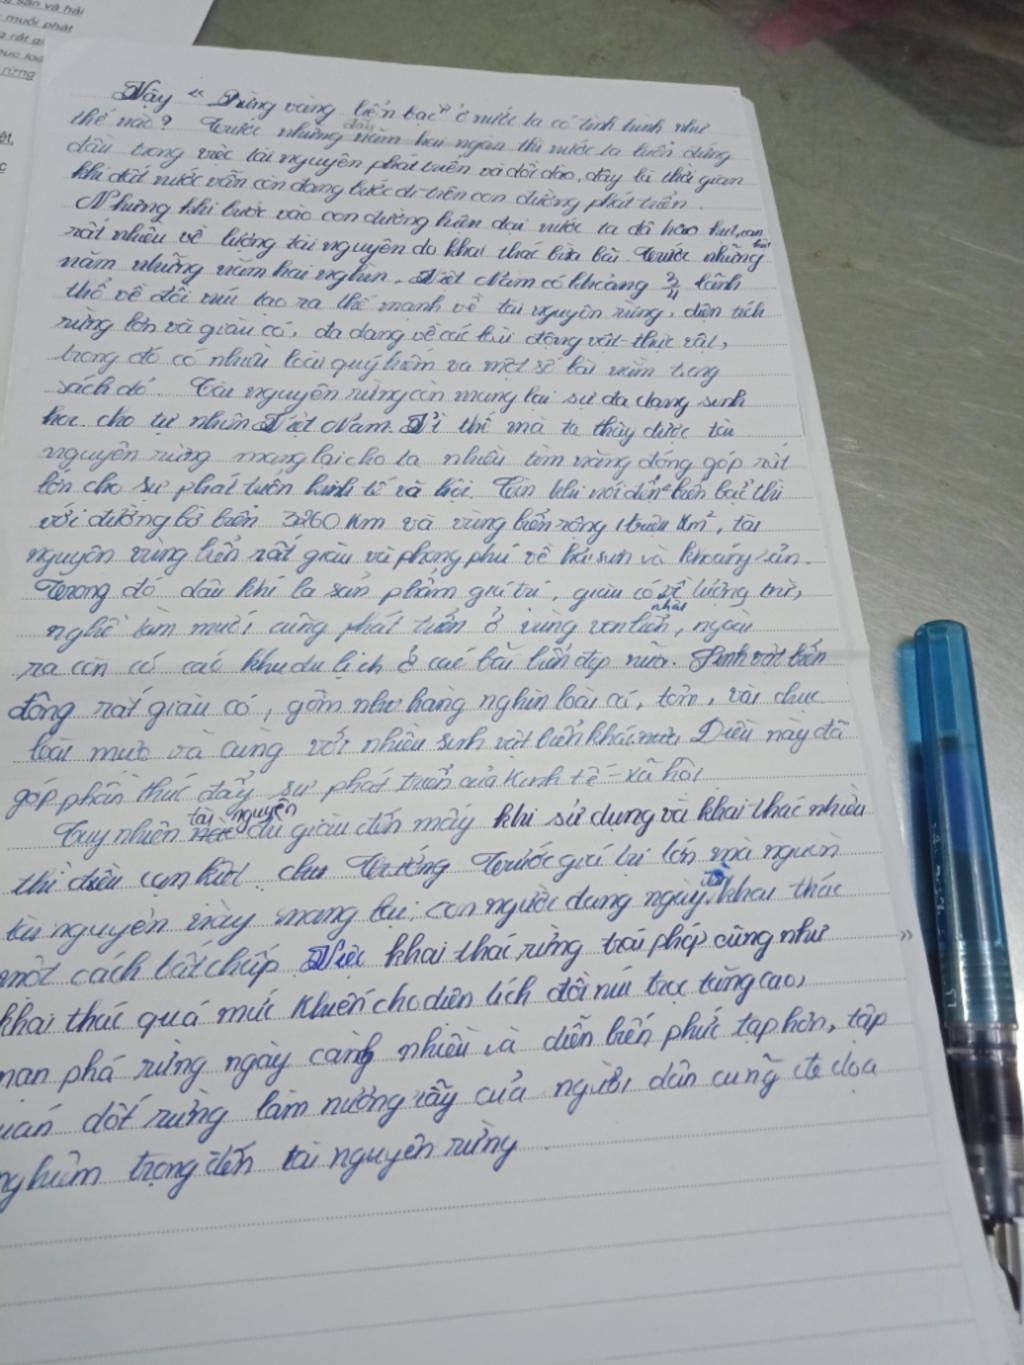 sản và hải
muối phát
rất gi
rừng
Vậy " Rừng vàng biển bạc" ở nước ta có tình hình như
thế nào? Trước những năm hai ngàn thì nước ta luôn đứng
đầu
đầu trong việc tài nguyên phát triển và dồi dào, đây là thời gian
khi đất nước vẫn còn đang bước đi trên con đường phát triển.
Nhưng khi bước vào con đường hiện đại nước ta đã hao hụt
rất nhiều về lượng tài nguyên do khai thác bừa bãi. Trước những
năm những năm hai nghìn, Việt Nam có khoảng 3/4 lãnh
thổ về đồi núi tạo ra thế mạnh về tài nguyên rừng, diện tích
rừng lớn và giàu có, đa dạng về các loài động vật - thực vật,
trong đó có nhiều loài quý hiếm và một số loài nằm trong
sách đỏ. Tài nguyên rừng còn mang lại sự đa dạng sinh
học cho tự nhiên Việt Nam. Vì thế mà ta thấy được tài
nguyên rừng mang lại cho ta nhiều tiềm năng đóng góp rất
lớn cho sự phát triển kinh tế xã hội. Còn khi nói đến "biển bạc" thì
với đường bờ biển 3260 km và vùng biển rộng 1 triệu km², tài
nguyên vùng biển rất giàu và phong phú về hải sản và khoáng sản.
Trong đó dầu khí là sản phẩm giá trị, giàu có về lượng trữ,
nghề làm muối cũng phát triển ở vùng ven biển, ngoài
ra còn có các khu du lịch ở các bãi biển đẹp nữa. Sinh vật biển
đông rất giàu có, gồm như hàng nghìn loài cá, tôm, vài chục
loài mực và cùng với nhiều sinh vật biển khác nữa. Điều này đã
góp phần thúc đẩy sự phát triển của kinh tế - xã hội
tài nguyên
Tuy nhiên dù giàu đến mấy khi sử dụng và khai thác nhiều
thì đều cạn kiệt. Trước giá trị lớn mà nguồn
tài nguyên này mang lại, con người đang ngày khai thác
một cách bất chấp Việc khai thác rừng trái phép cũng như
khai thác quá mức khiến cho diện tích đồi núi trọc tăng cao,
nạn phá rừng ngày càng nhiều và diễn biến phức tạp hơn, tập
quán đốt rừng làm nương rẫy của người dân cũng đe dọa
nghiêm trọng đến tài nguyên rừng